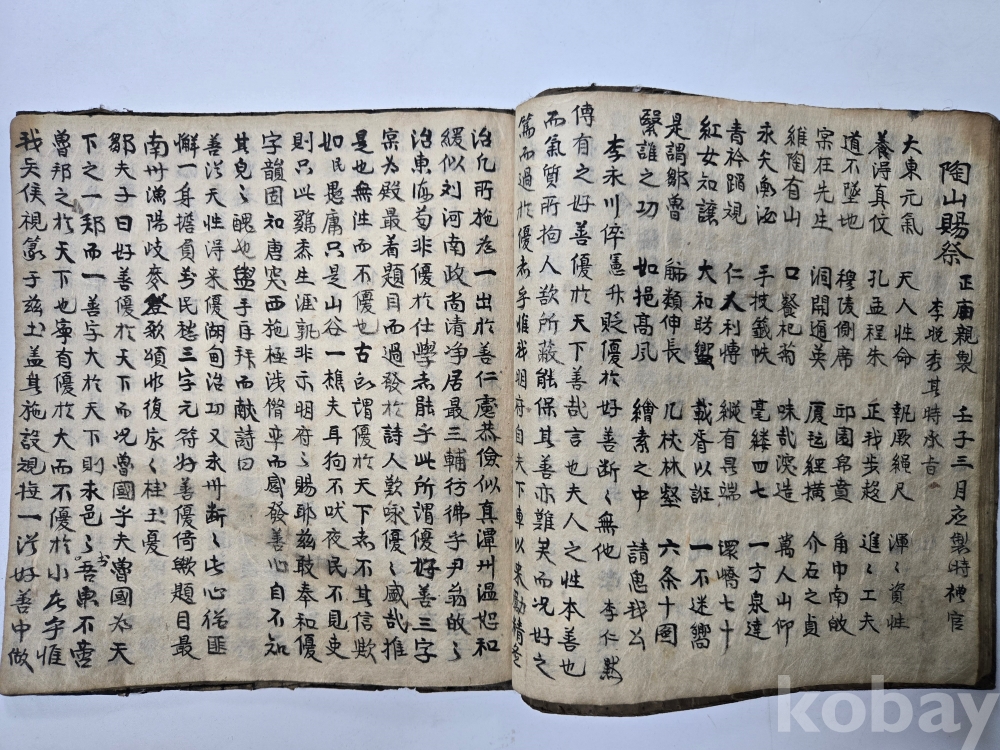 陶山賜祭 正庙親製 壬子三月 应製時禮官
李晚秀其時承旨
大東元氣 天人性命 執厥繩尺 渾〻資性
養得真 孔孟程朱 正我步趨 進〻工夫
道不墜地 穆陵側席 邱園帛賁 角巾南
宗在先生 洞開通英 厦毡經橫 介石之貞
維陶有山 口餐杞菊 味哉深造 萬人山仰
永矢 手技籤帙 毫縷四七 一方泉達
青衿蹈規 仁人利慱 縱有異端 環橋七十
紅女知讓 大和昉蠁 載胥以誑 一不迷嚮
是謂鄒魯 觸類伸長 几杖林壑 六条十圖
繄誰之功 如挹高風 繪素之中 請思我公
李永川倅憲升貶優於好善断〻無他 李仁
傳有之好善優於天下善哉言也夫人之性本善也
而氣質所拘人欲所蔽能保其善亦難矣而况好之
篤而過於優者乎惟我明府自夫下車以来
治凡所施為一出於善仁慮恭儉似真潭州温恕和
緩似刘河南政尚清净居最三輔行彿乎尹翁故〻
治東海苟非優於仕學者能乎此所謂優好善三字
為殿最着題目而過發於詩人歎咏優〻盛哉推
是也無性而不優也古所謂優於天下者不其信歟
如民愚庸只是山谷一樵夫耳狗不吠夜民不見吏
則只此鷄黍生涯孰非示明府之賜耶兹敢奉和優
字韻固知唐突西施極涉僭率而感發善心自不知
其皃之醜也盥手再拜而献詩曰
善治天性得来優湖甸治功又永州断〻此心從匪
懈一身擔負萬民愁三字元符好善優倚歟題目最
南州漁陽岐麥登歌頌 復家〻桂玉憂
鄒夫子曰好善優於天下而况魯國乎夫魯國为天
下之一邦而一善与大於天下則永邑之於吾東不啻
魯邦之於天下也寧有優於大而不優於小者乎惟
我矣侯視篆于兹土盖其施設規 一從好善中做
kobay